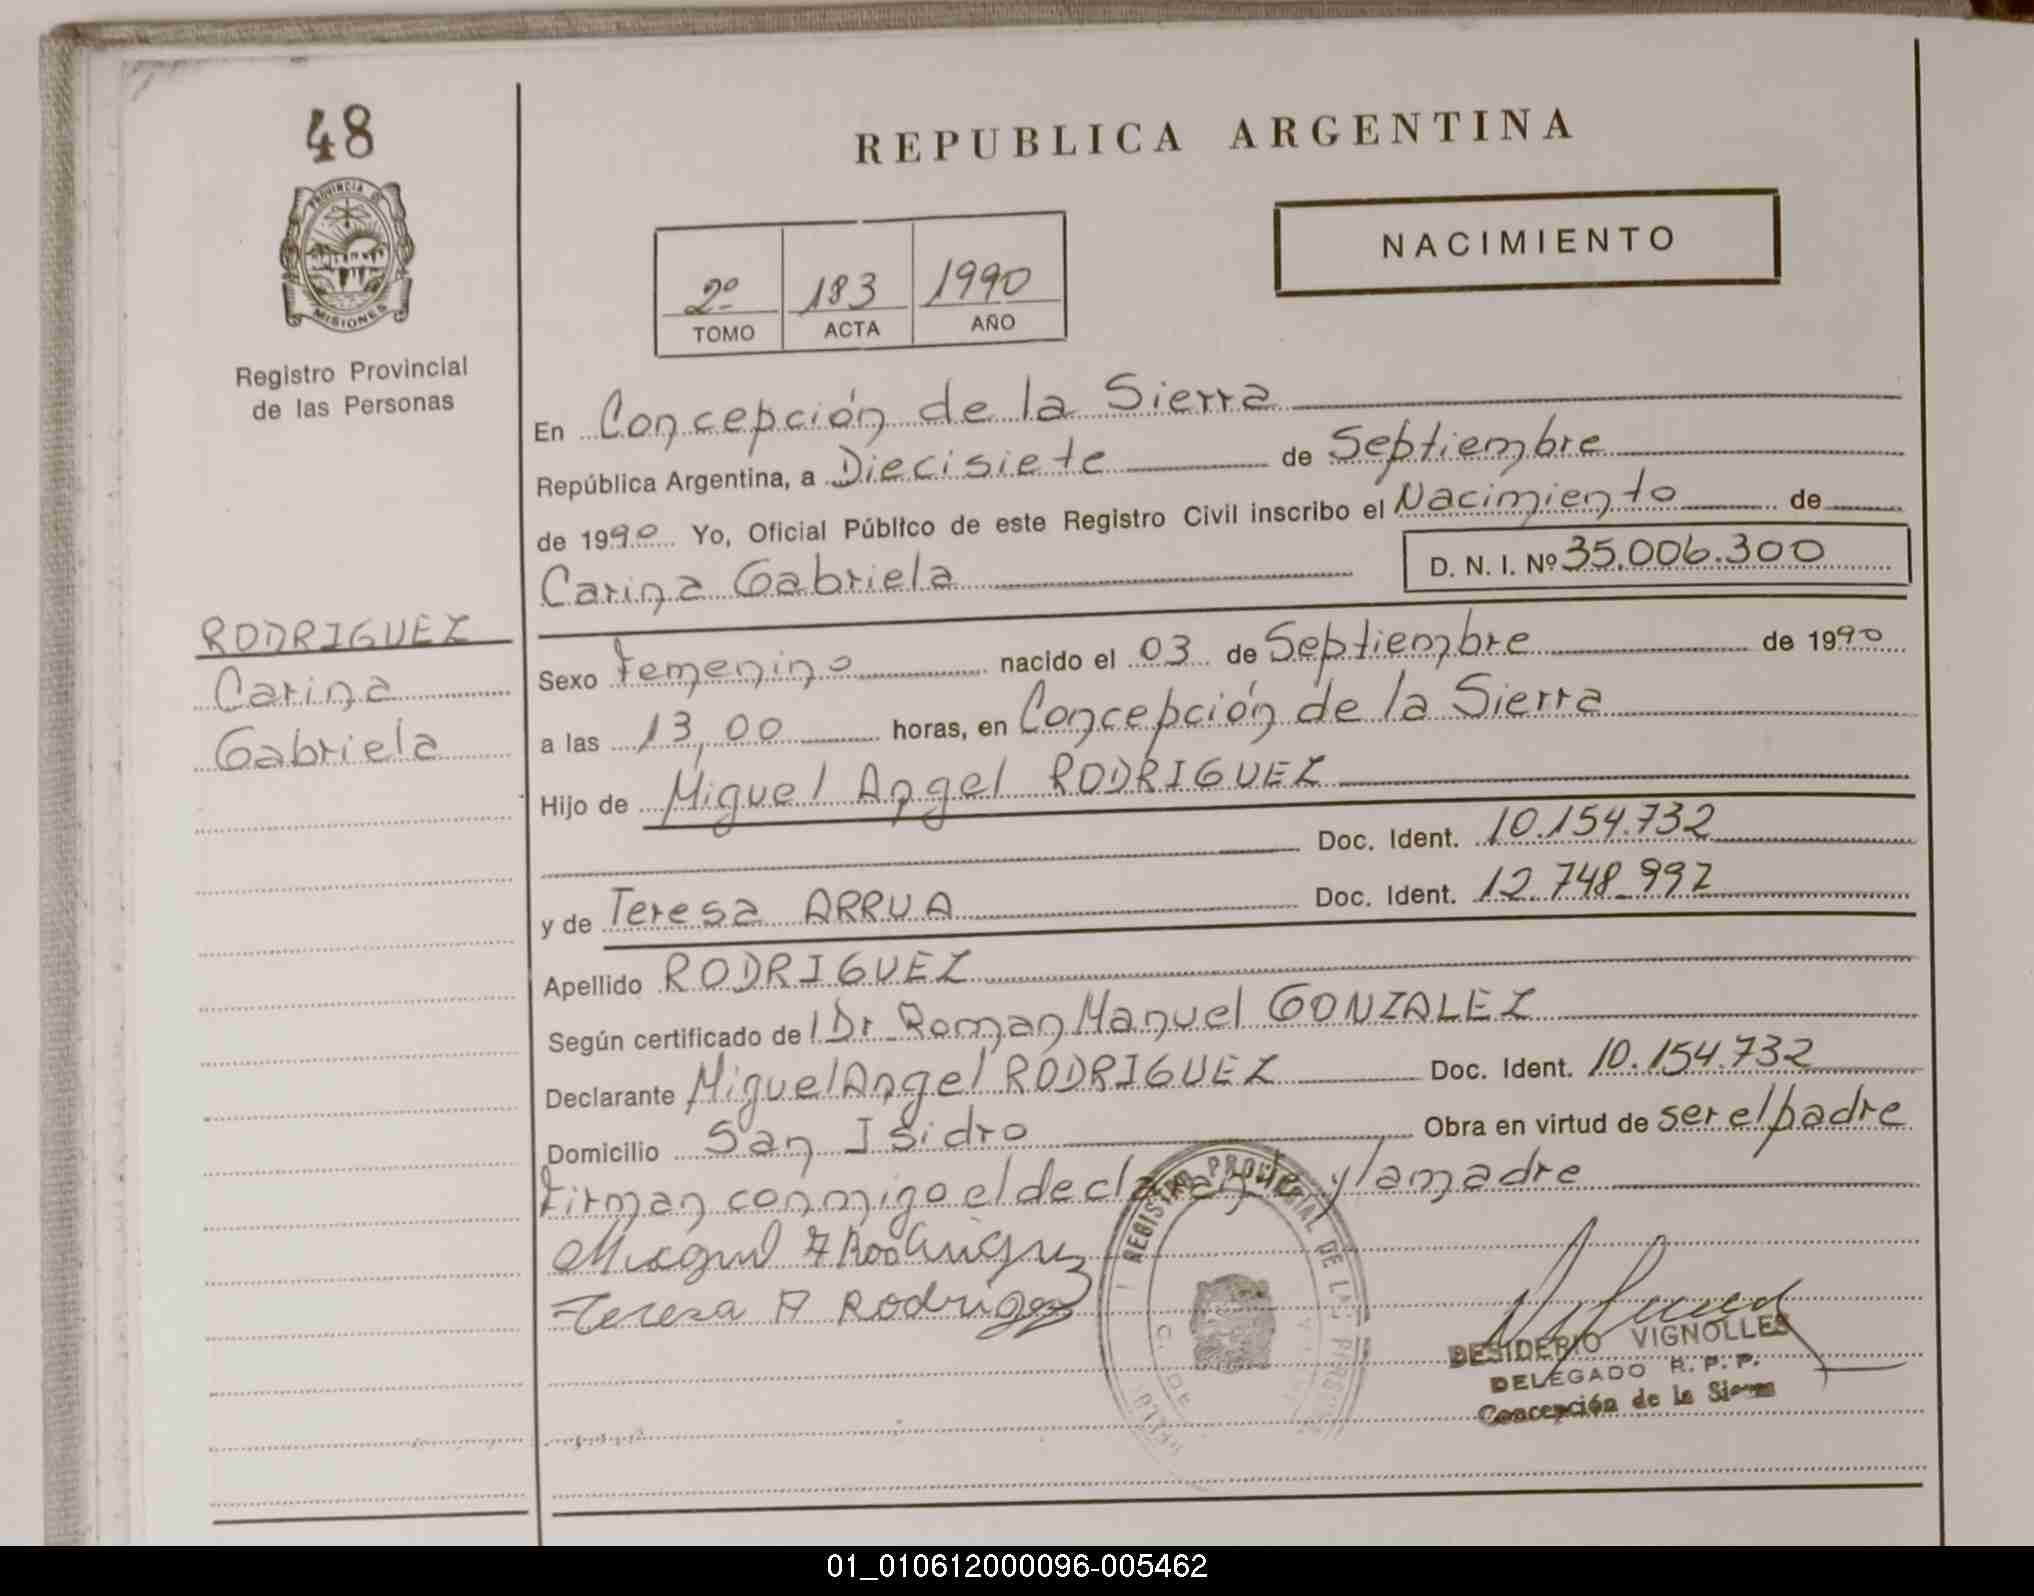 48
PROVINCIA DE
MISIONES
Registro Provincial
de las Personas
RODRIGUEZ
Carina
Gabriela
REPUBLICA ARGENTINA
NACIMIENTO
2º 183 1990
TOMO ACTA AÑO
En Concepción de la Sierra
República Argentina, a Diecisiete de Septiembre
de 1990 Yo, Oficial Público de este Registro Civil inscribo el Nacimiento de
Carina Gabriela D. N. I. Nº 35.006.300
Sexo Femenino nacido el 03 de Septiembre de 1990
a las 13,00 horas, en Concepción de la Sierra
Hijo de Miguel Angel RODRIGUEZ
Doc. Ident. 10.154.732
y de Teresa ARRUA Doc. Ident. 12.748.992
Apellido RODRIGUEZ
Según certificado de l Dr Roman Manuel GONZALEZ
Declarante Miguel Angel RODRIGUEZ Doc. Ident. 10.154.732
Domicilio San Isidro Obra en virtud de ser el padre
Firman conmigo el declarante y la madre
Miguel A Rodriguez
Teresa A Rodriguez
REGISTRO PROVINCIAL DE LAS PERSONAS
DESIDERIO VIGNOLLES
DELEGADO R. P. P.
Concepción de la Sierra
01_010612000096-005462